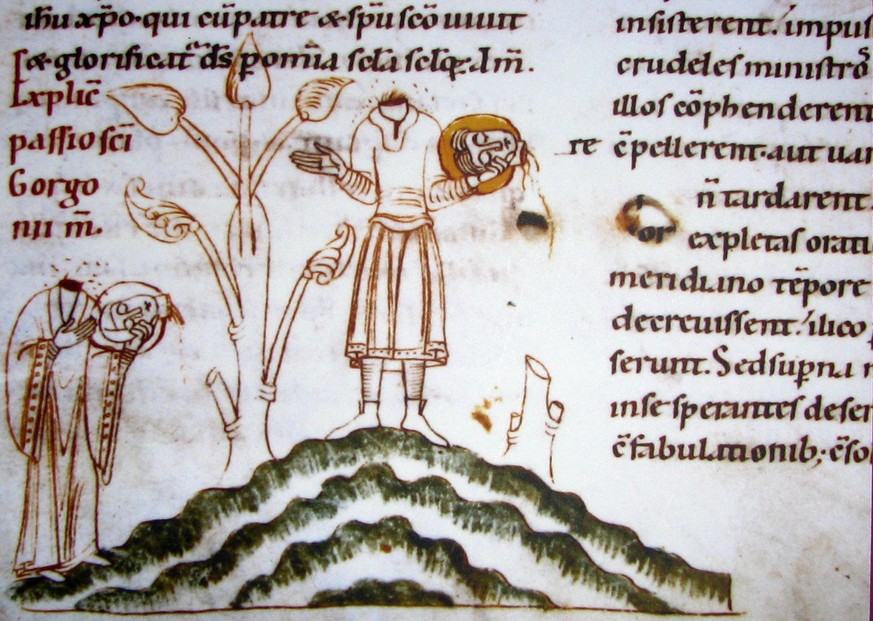 ihu xp̄o. qui cū patre & sp̄u scō uiuit
& glorificat᷑ d̄s p omīa sclā sclōꝝ. Am̄.
Explic̄
passio sc̄i
Gorgo
nii m̄.
insisterent. impus
crudeles ministrō
illos cōphenderent
re c̄pellerent. aut uar
n̄ tardarent.
or expletas orati
meridiano tēpore
decreuissent. ilico
serunt. Sed supna
in se sperantes deser
c̄fabulationib; c̄sol